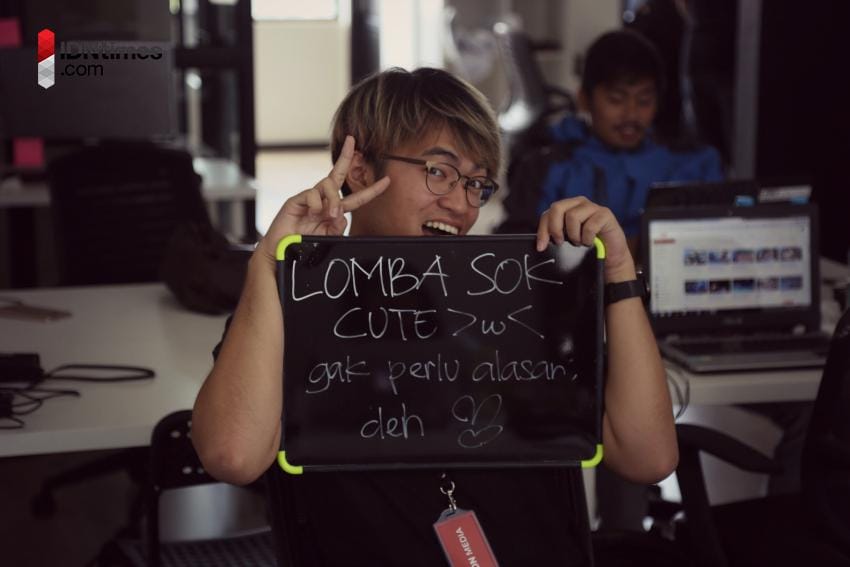 IDNtimes
.com
LOMBA SOK
CUTE >w<
gak perlu alasan,
deh